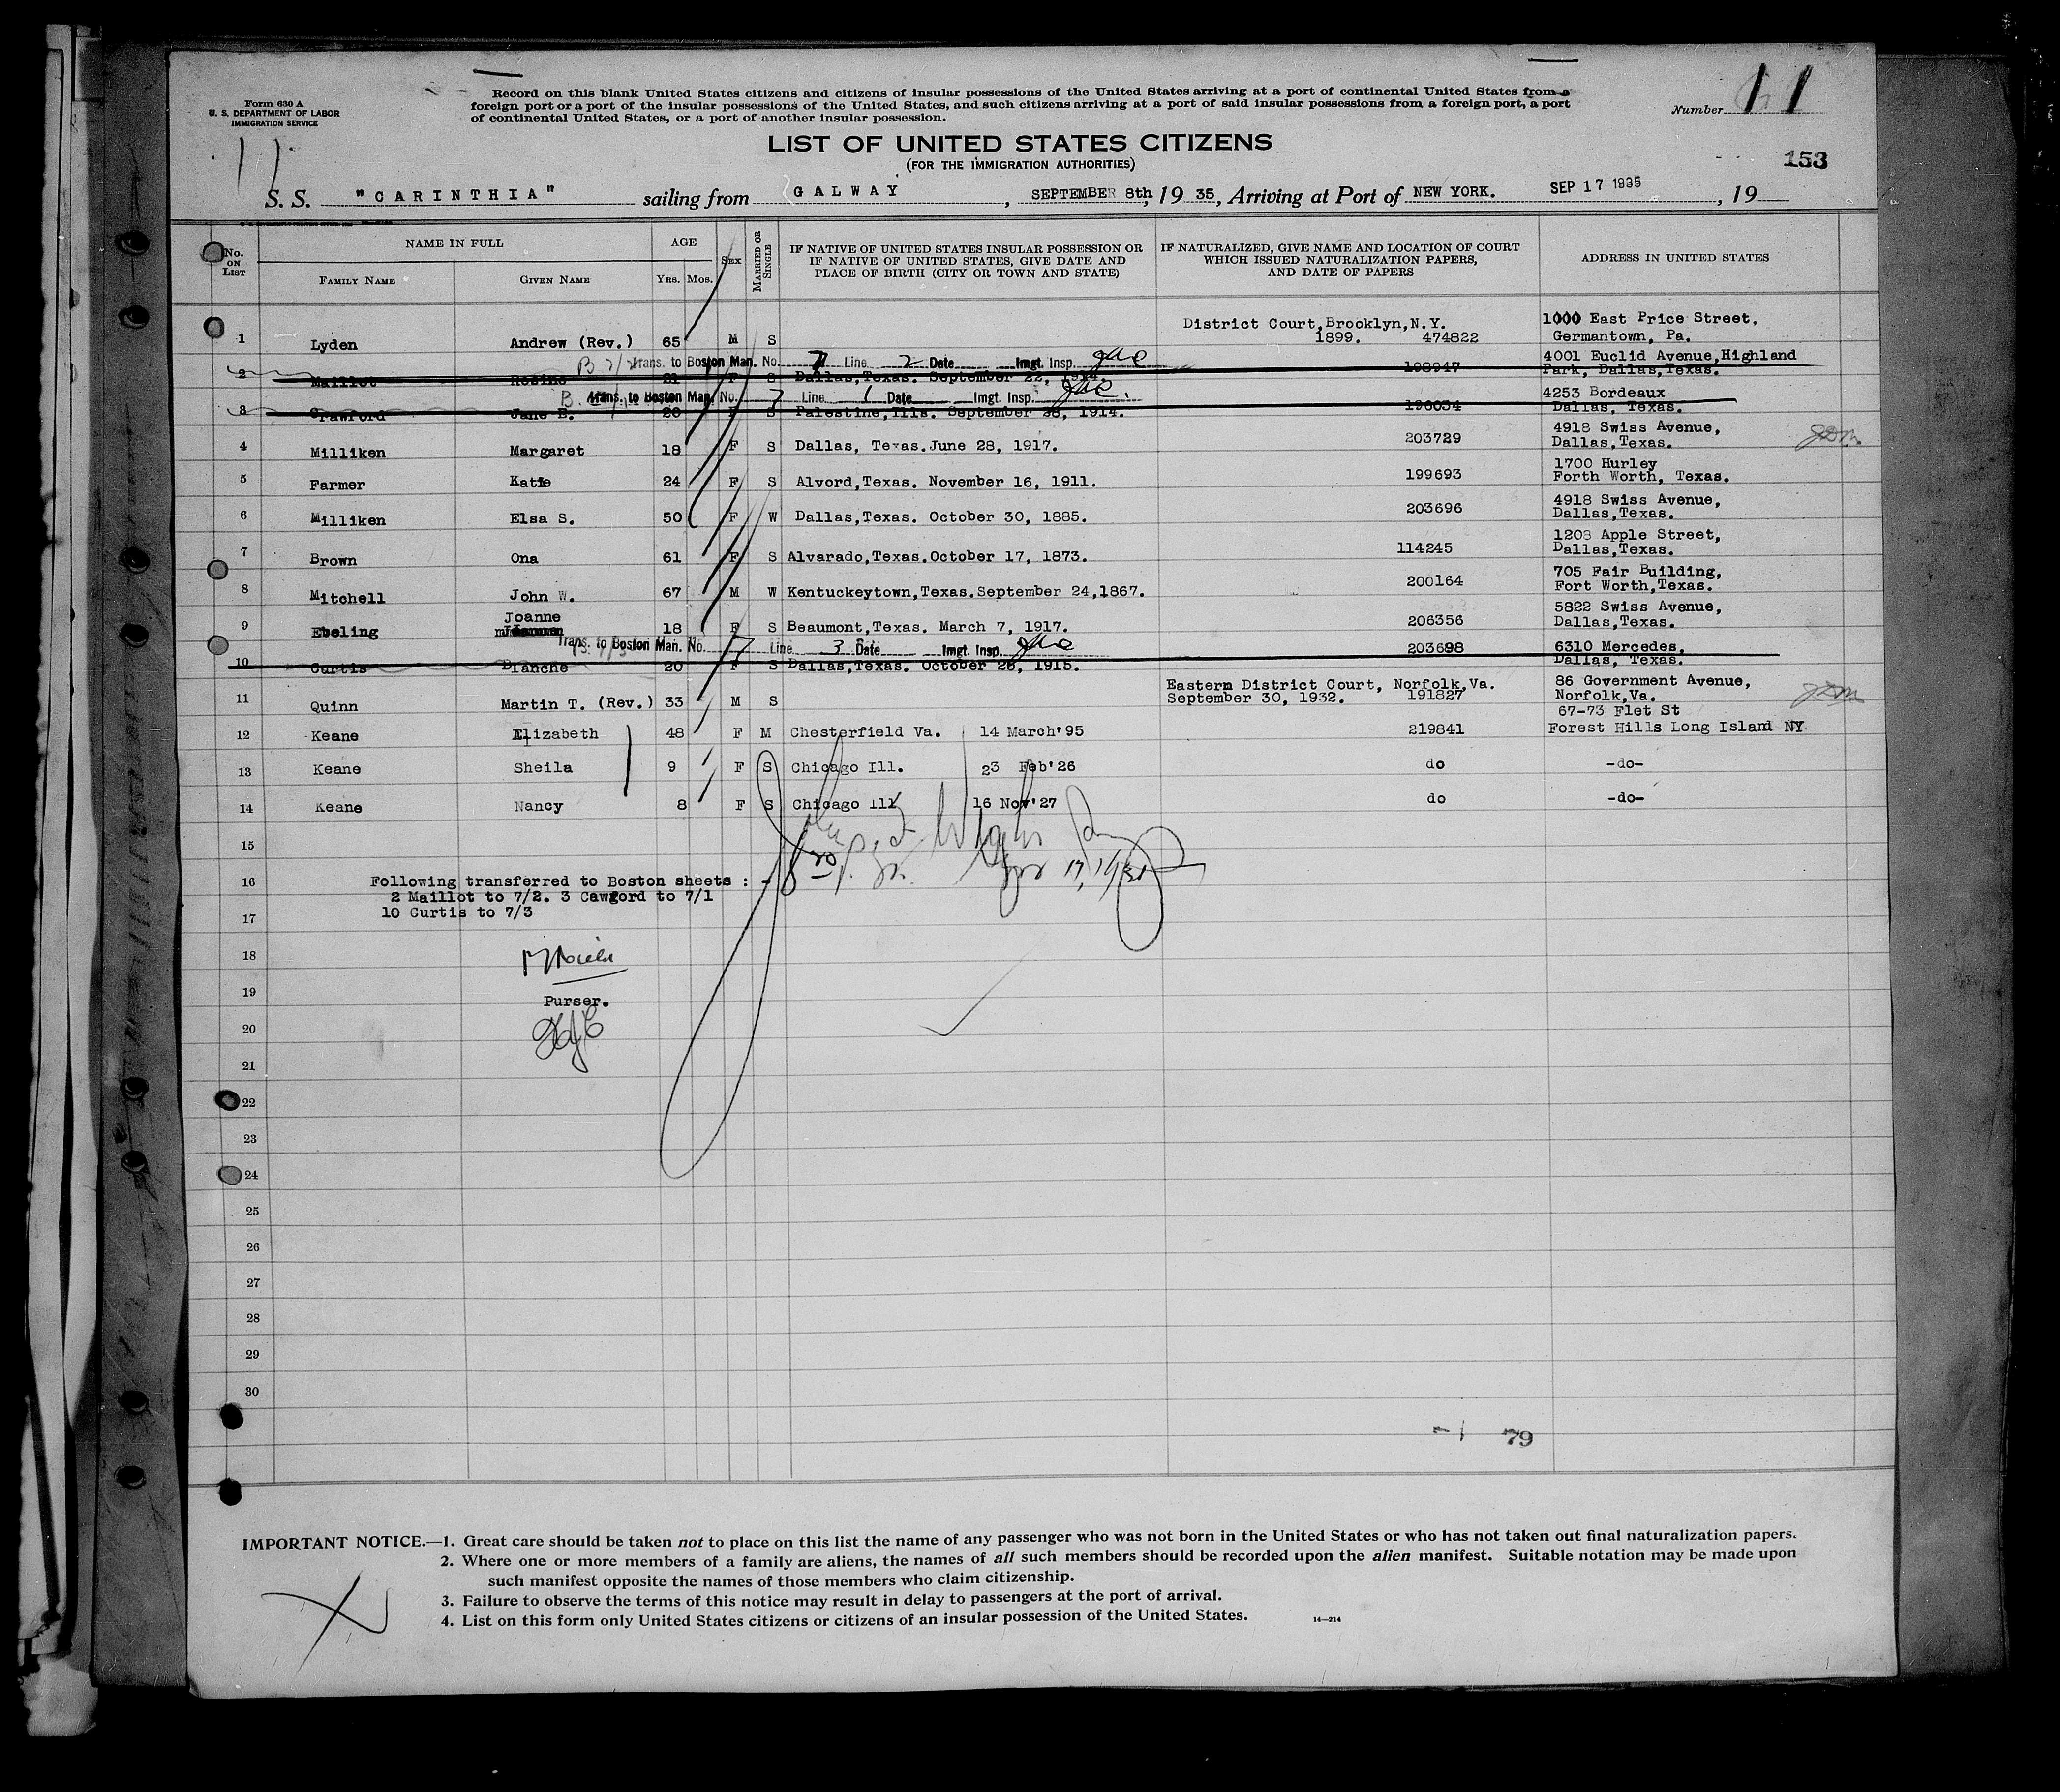 Form 630 A
U. S. DEPARTMENT OF LABOR
IMMIGRATION SERVICE
Record on this blank United States citizens and citizens of insular possessions of the United States arriving at a port of continental United States from a
foreign port or a port of the insular possessions of the United States, and such citizens arriving at a port of said insular possessions from a foreign port, a port
of continental United States, or a port of another insular possession.
Number 11
LIST OF UNITED STATES CITIZENS
(FOR THE IMMIGRATION AUTHORITIES)
11
153
S. S. "CARINTHIA" sailing from GALWAY, SEPTEMBER 8th, 19 35, Arriving at Port of NEW YORK. SEP 17 1935, 19
No. ON LIST NAME IN FULL AGE SEX MARRIED OR SINGLE IF NATIVE OF UNITED STATES INSULAR POSSESSION OR IF NATIVE OF UNITED STATES, GIVE DATE AND PLACE OF BIRTH (CITY OR TOWN AND STATE) IF NATURALIZED, GIVE NAME AND LOCATION OF COURT WHICH ISSUED NATURALIZATION PAPERS, AND DATE OF PAPERS ADDRESS IN UNITED STATES
FAMILY NAME GIVEN NAME YRS. MOS.
1 Lyden Andrew (Rev.) 65 M S District Court,Brooklyn,N.Y. 1899. 474822 1000 East Price Street, Germantown, Pa.
Trans. to Boston Man. No. 7 Line 2 Date Imgt. Insp.
2 Maillot Rosine 21 F S Dallas,Texas. September 22, 1914 198947 4001 Euclid Avenue,Highland Park, Dallas,Texas.
Trans. to Boston Man. No. 7 Line 1 Date Imgt. Insp.
3 Crawford Jane E. 20 F S Palestine,Ills. September 28, 1914. 198034 4253 Bordeaux Dallas, Texas.
4 Milliken Margaret 18 F S Dallas, Texas.June 28, 1917. 203729 4918 Swiss Avenue, Dallas,Texas.
5 Farmer Katie 24 F S Alvord,Texas. November 16, 1911. 199693 1700 Hurley Forth Worth, Texas.
6 Milliken Elsa S. 50 F W Dallas,Texas. October 30, 1885. 203696 4918 Swiss Avenue, Dallas,Texas.
7 Brown Ona 61 F S Alvarado,Texas.October 17, 1873. 114245 1203 Apple Street, Dallas,Texas.
8 Mitchell John W. 67 M W Kentuckeytown,Texas.September 24,1867. 200164 705 Fair Building, Fort Worth,Texas.
9 Ebeling Joanne 18 F S Beaumont,Texas. March 7, 1917. 206356 5822 Swiss Avenue, Dallas,Texas.
Trans. to Boston Man. No. 7 Line 3 Date Imgt. Insp.
10 Curtis Blanche 20 F S Dallas,Texas. October 26, 1915. 203698 6310 Mercedes, Dallas, Texas.
11 Quinn Martin T. (Rev.) 33 M S Eastern District Court, Norfolk,Va. September 30, 1932. 191827 86 Government Avenue, Norfolk,Va.
12 Keane Elizabeth 48 F M Chesterfield Va. 14 March'95 219841 67-73 Flet St Forest Hills Long Island NY
13 Keane Sheila 9 F S Chicago Ill. 23 Feb'26 do -do-
14 Keane Nancy 8 F S Chicago Ill 16 Nov'27 do -do-
15
16 Following transferred to Boston sheets : -
2 Maillot to 7/2. 3 Cawgord to 7/1
17 10 Curtis to 7/3
18
19 Purser.
20
21
22
23
24
25
26
27
28
29
30
-1 79
IMPORTANT NOTICE.—1. Great care should be taken not to place on this list the name of any passenger who was not born in the United States or who has not taken out final naturalization papers.
2. Where one or more members of a family are aliens, the names of all such members should be recorded upon the alien manifest. Suitable notation may be made upon
such manifest opposite the names of those members who claim citizenship.
3. Failure to observe the terms of this notice may result in delay to passengers at the port of arrival.
4. List on this form only United States citizens or citizens of an insular possession of the United States.
14—214